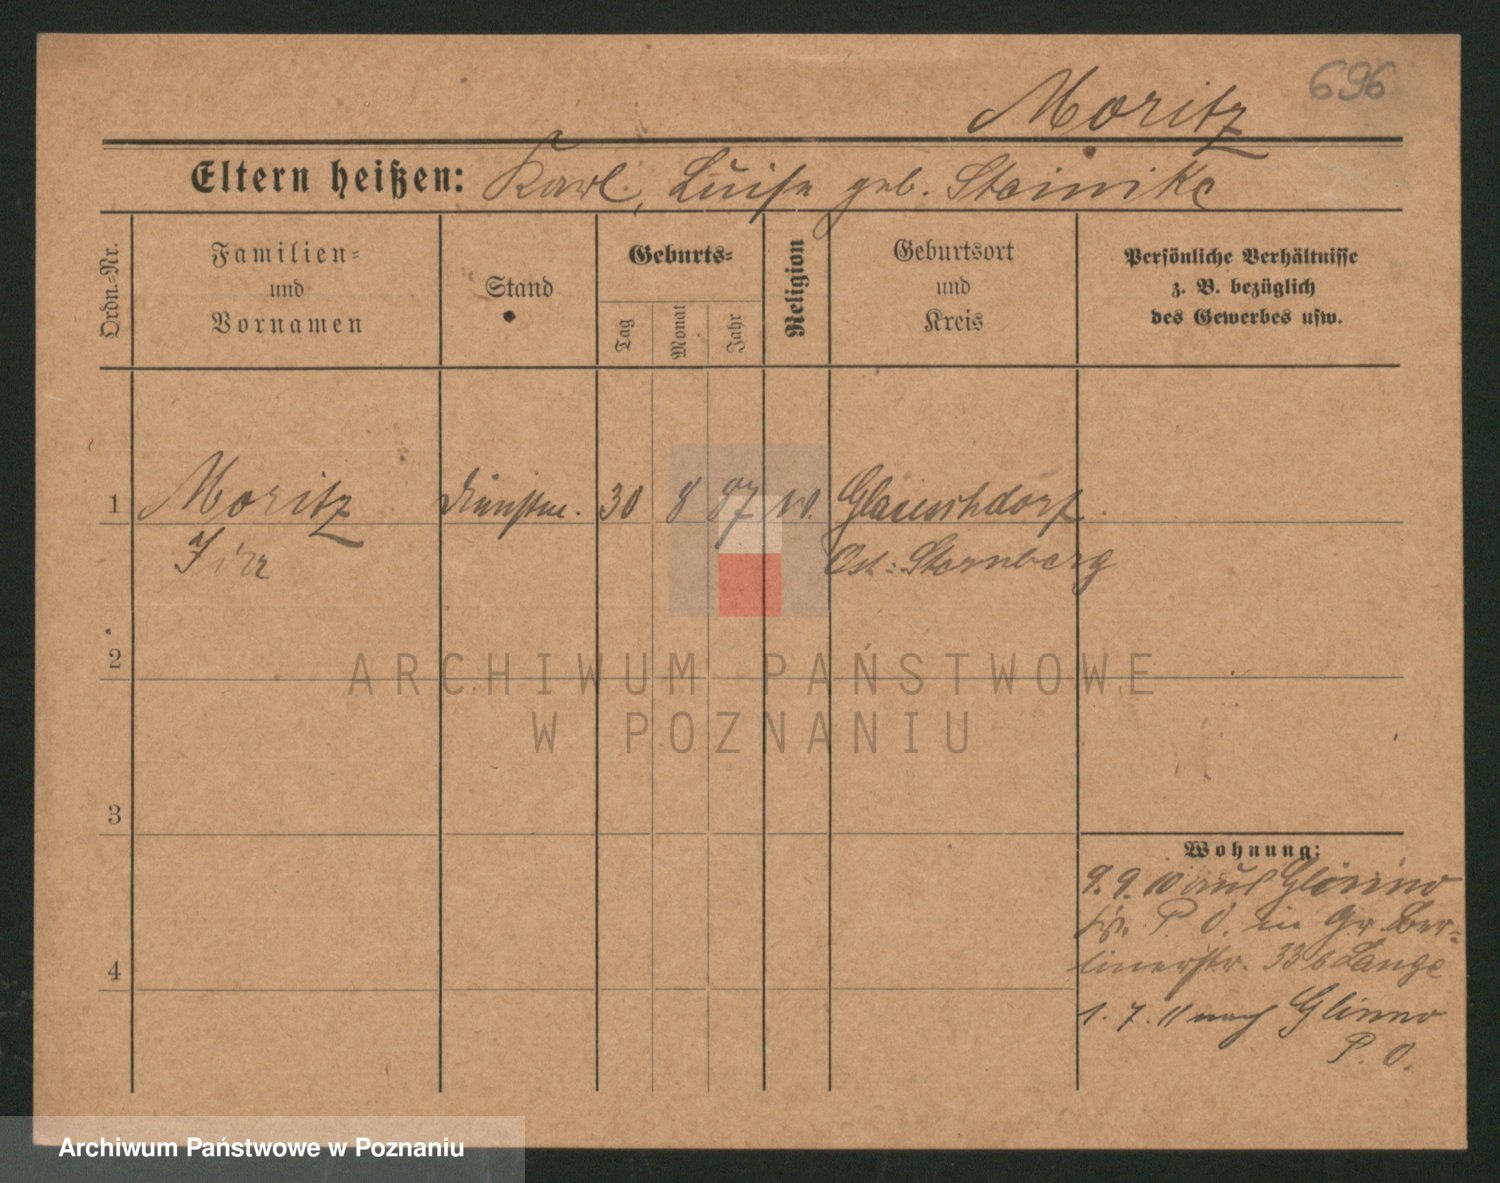 696
Moritz
Eltern heißen: Karl, Luise geb. Steinike
Ordn.-Nr.
Familien-
und
Vornamen
Stand
Geburts-
Tag
Monat
Jahr
Religion
Geburtsort
und
Kreis
Persönliche Verhältnisse
z. B. bezüglich
des Gewerbes usw.
1 Moritz Dienstm. 30 8 87
Ost: Sternberg
2
ARCHIWUM PAŃSTWOWE
W POZNANIU
3
Wohnung:
9. 9. 10 aus Glinno
P. O. in Gr. Ber-
linerstr. 33 b Lange
4
1. 7. 11 nach Glinno
P. O.
Archiwum Państwowe w Poznaniu